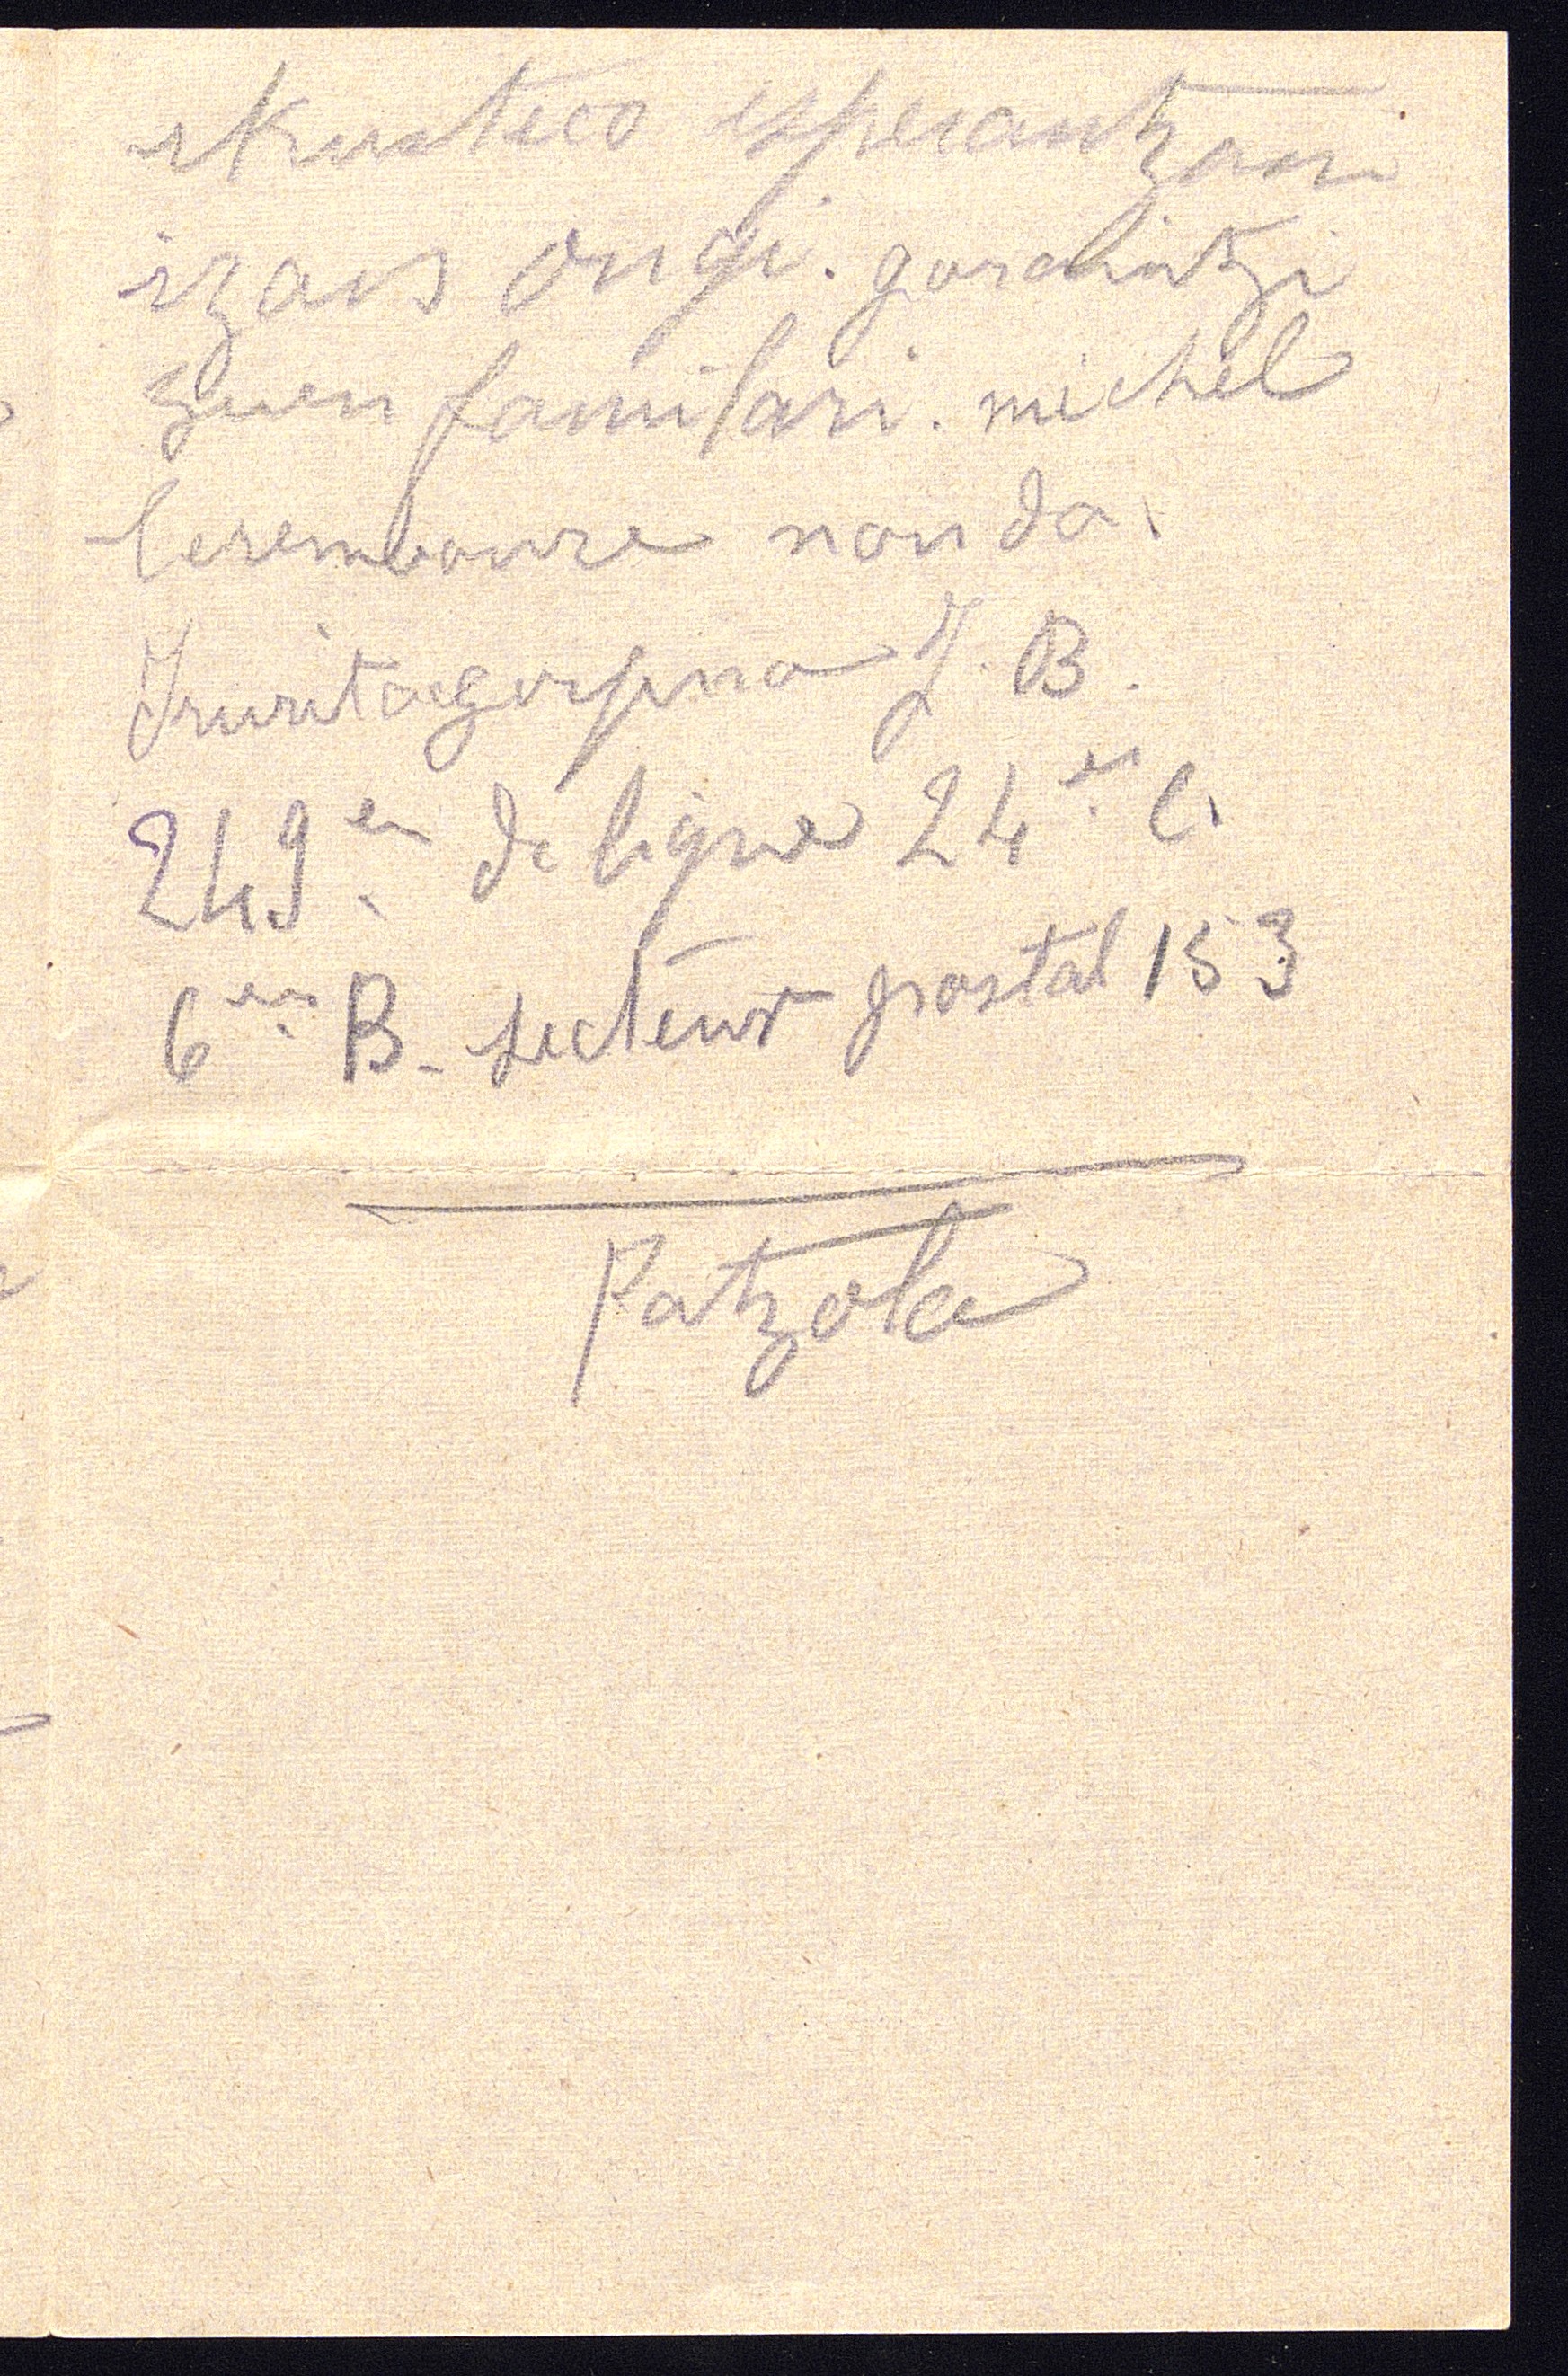 ikusteco esperantzan
izans ongi. goraintzi
zuen familari. michel
leremboure nonda.
Iruritagoyena J. B.
249en de ligne 24en C.
6en B. secteur postal 153
Patzola